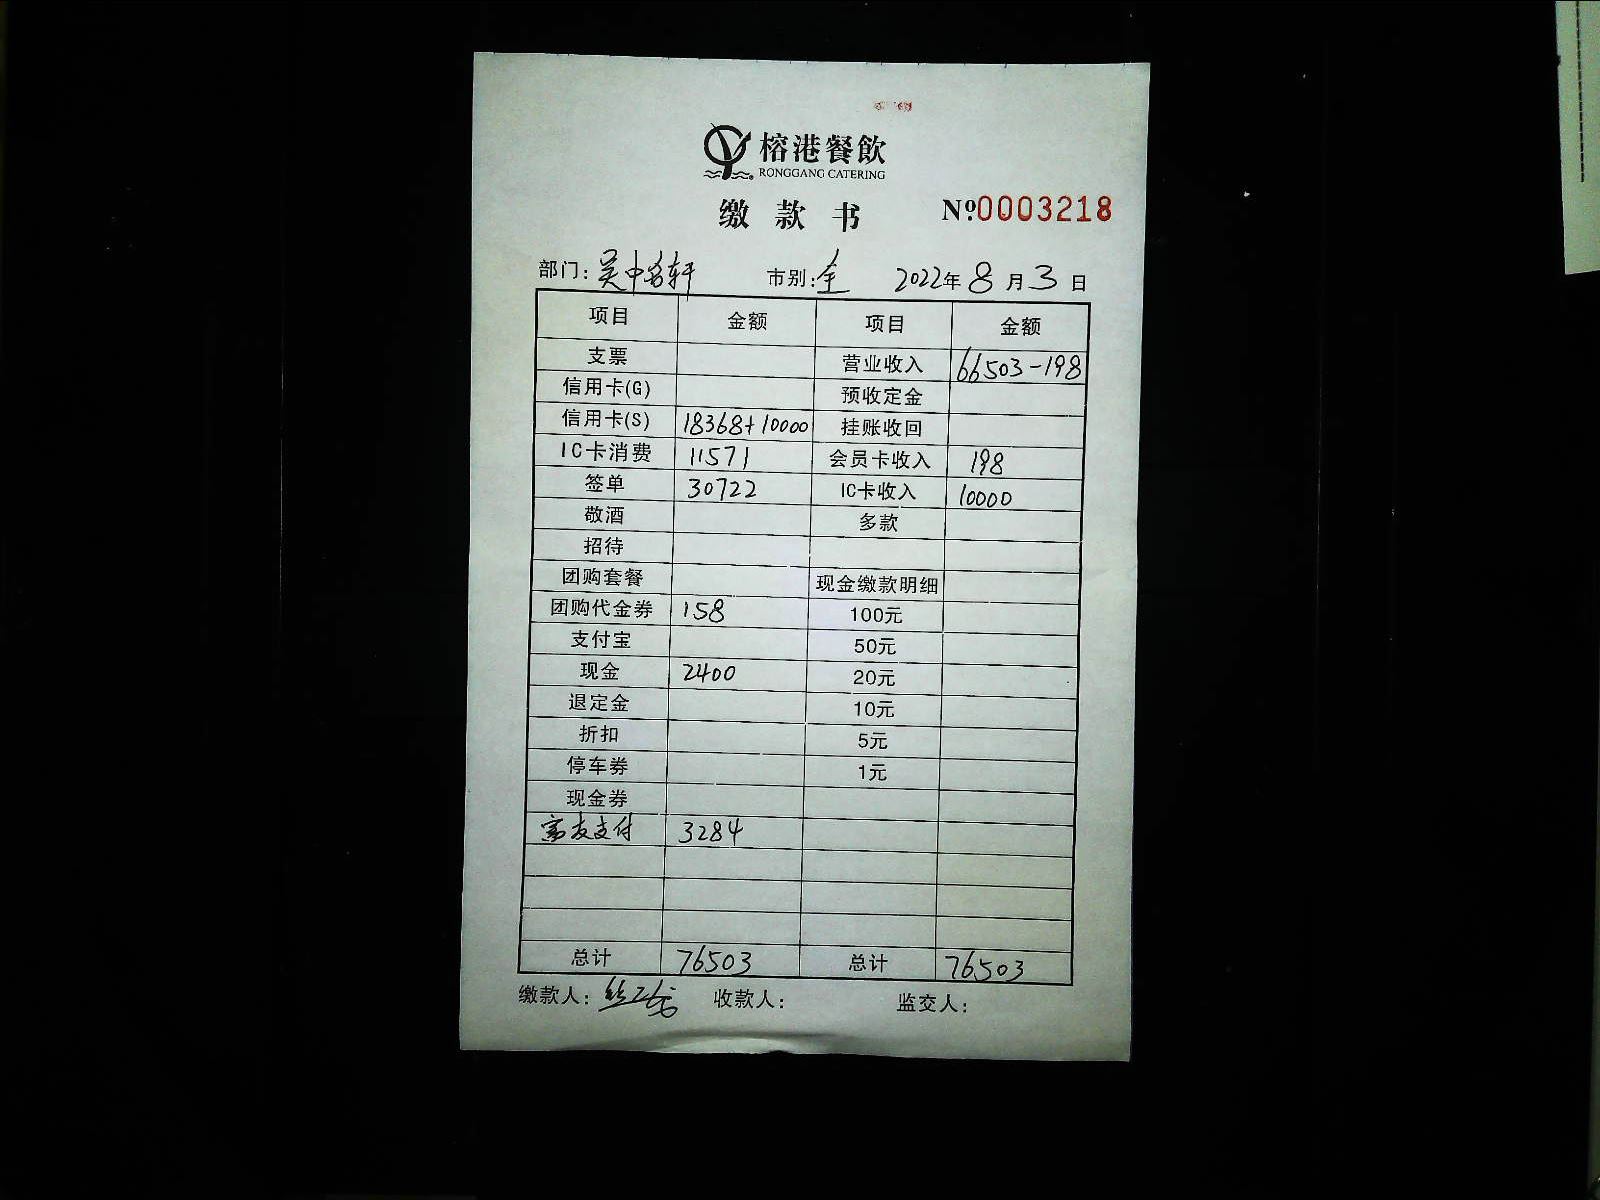 榕港餐飲
RONGGANG CATERING
缴款书 №0003218
部门：吴中名轩 市别：全 2022年8月3日
项目 金额 项目 金额
支票 营业收入 66503-198
信用卡(G) 预收定金
信用卡(S) 18368+10000 挂账收回
IC卡消费 11571 会员卡收入 198
签单 30722 IC卡收入 10000
敬酒 多款
招待
团购套餐 现金缴款明细
团购代金券 158 100元
支付宝 50元
现金 2400 20元
退定金 10元
折扣 5元
停车券 1元
现金券
富友支付 3284
总计 76503 总计 76503
缴款人： 收款人： 监交人：